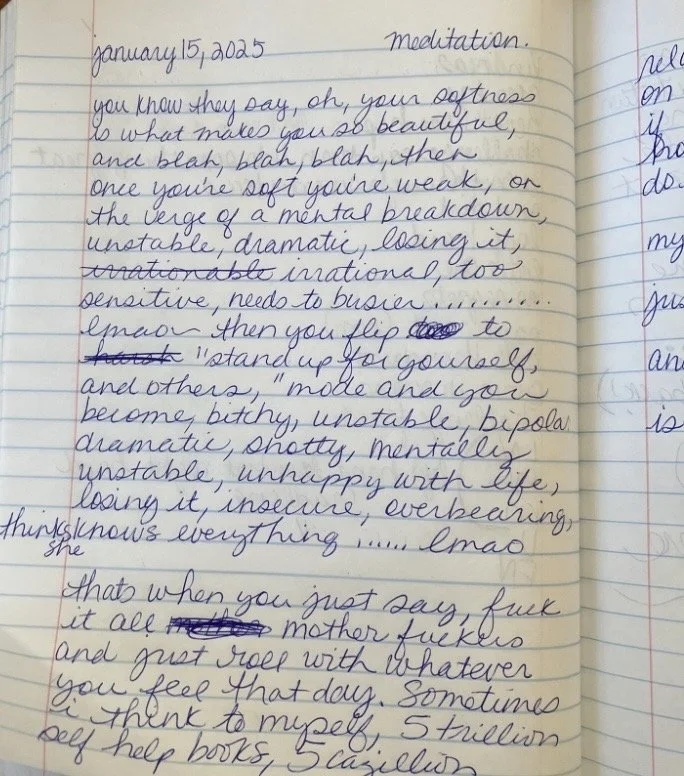 january 15, 2025 meditation.
you know they say, oh, your softness
is what makes you so beautiful,
and blah, blah, blah, then
once you're soft you're weak, on
the verge of a mental breakdown,
unstable, dramatic, losing it,
irrationable irrational, too
sensitive, needs to busier..........
lmao then you flip to
harsh "stand up for yourself,
and others, "mode and you
become, bitchy, unstable, bipola
dramatic, shotty, mentally
unstable, unhappy with life,
losing it, insecure, overbearing,
thinks she knows everything ...... lmao
thats when you just say, fuck
it all mother fuckers
and just roll with whatever
you feel that day. Sometimes
i think to myself, 5 trillion
self help books, 5 cazillion
rel
on
if
do.
my
jus
an
is